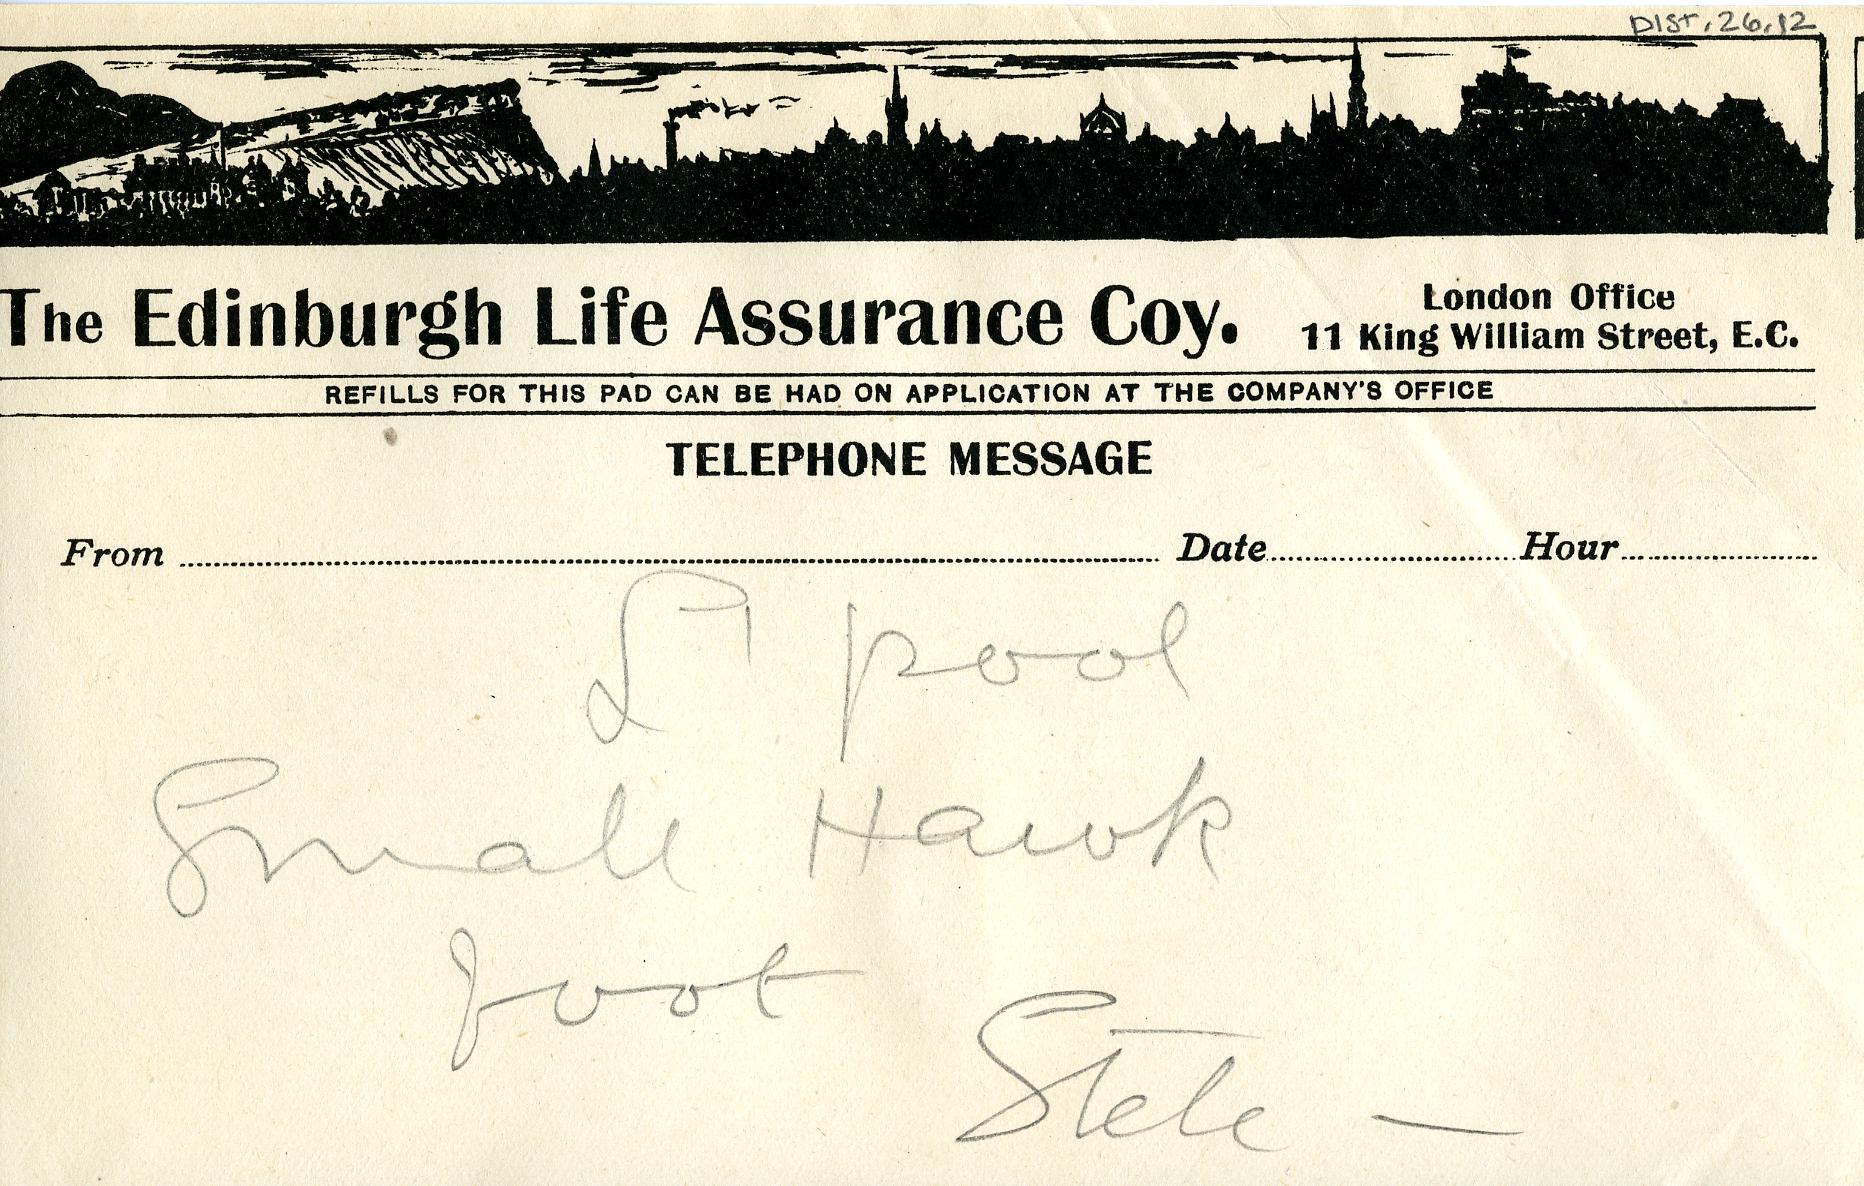 DIST.26.12
The Edinburgh Life Assurance Coy.
London Office
11 King William Street, E.C.
REFILLS FOR THIS PAD CAN BE HAD ON APPLICATION AT THE COMPANY'S OFFICE
TELEPHONE MESSAGE
From Date Hour
L'pool
Small Hawk
foot
Stele —